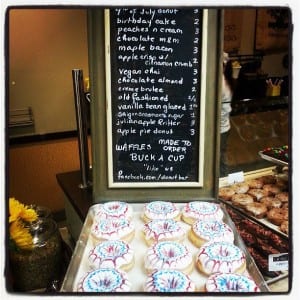 4th of July donut 3
birthday cake 2
peaches n cream 3
chocolate m&m 3
maple bacon 3
apple crisp w/ 3
cinnamon crumb 2
vegan chai 3
chocolate almond 3
creme brulee 2
old fashioned
vanilla bean glazed
julian apple fritter 3
apple pie donut 3
WAFFLES MADE TO ORDER
BUCK A CUP
"like" us
facebook.com/donutbar